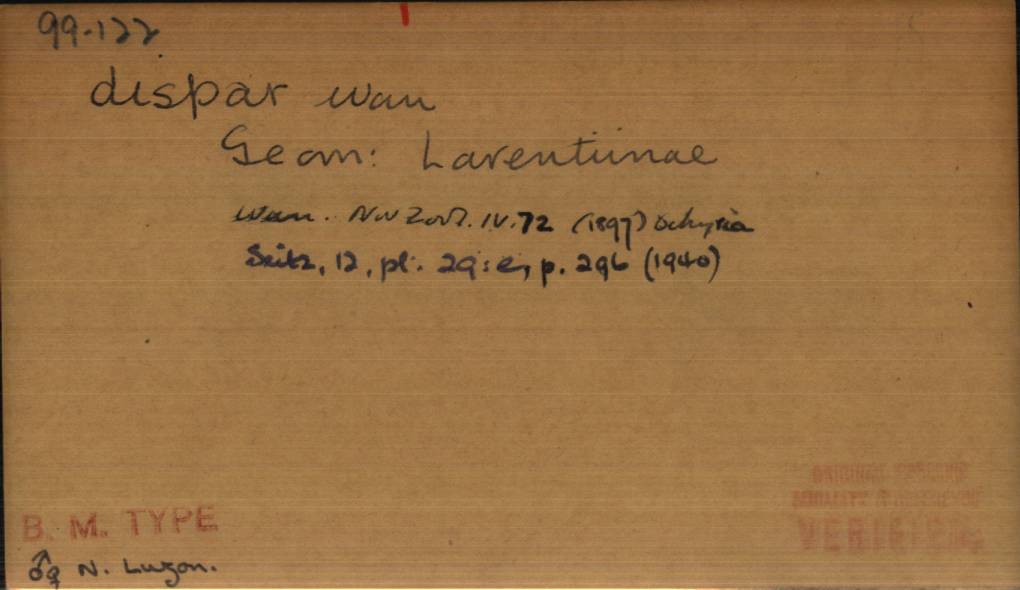 99-122
dispar Warr
Geom: Larentiinae
Warr. Nov Zool. IV. 72 (1897) Ochyria
Seitz, 12, pl. 29:e, p. 296 (1940)
ORIGINAL
VERIFIED
B. M. TYPE
♂♀ N. Luzon.